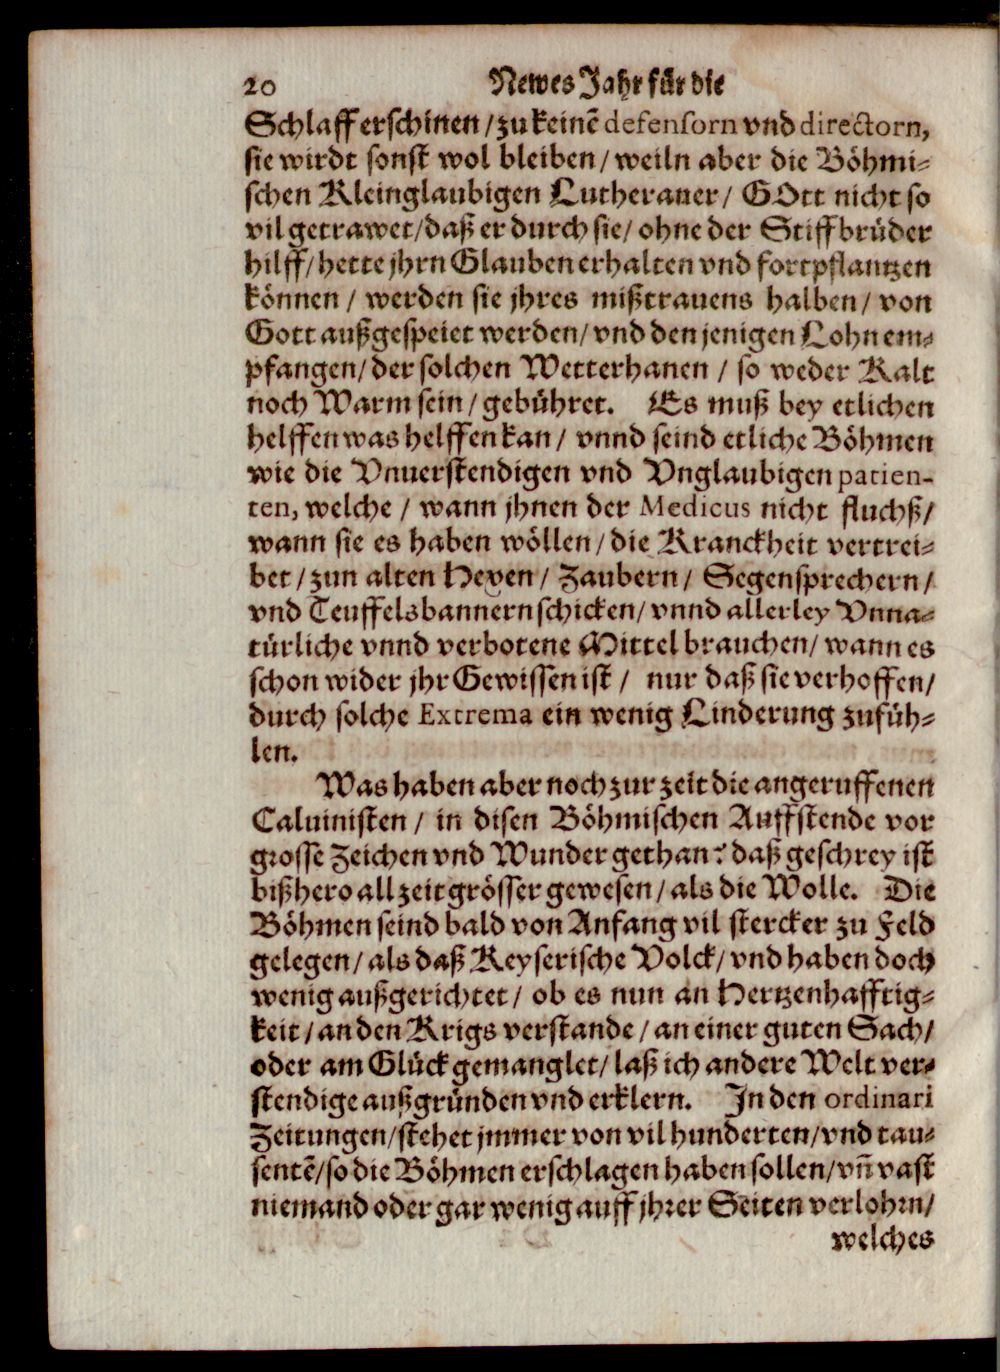 20 Newes Jahr für die
Schlaff erschinen / zu keinẽ defensorn vnd directorn,
sie wirdt sonst wol bleiben / weiln aber die Böhmi-
schen Kleinglaubigen Lutheraner / GOtt nicht so
vil getrawet / daß er durch sie / ohne der Stiffbrüder
hilff / hette jhrn Glauben erhalten vnd fortpflantzen
können / werden sie jhres mißtrauens halben / von
Gott außgespeiet werden / vnd den jenigen Lohn em-
pfangen / der solchen Wetterhanen / so weder Kalt
noch Warm sein / gebühret. Es muß bey etlichen
helffen was helffen kan / vnnd seind etliche Böhmen
wie die Vnuerstendigen vnd Vnglaubigen patien-
ten, welche / wann jhnen der Medicus nicht fluchß /
wann sie es haben wöllen / die Kranckheit vertrei-
bet / zun alten Hexen / Zaubern / Segensprechern /
vnd Teuffelsbannern schicken / vnnd allerley Vnna-
türliche vnnd verbotene Mittel brauchen / wann es
schon wider jhr Gewissen ist / nur daß sie verhoffen /
durch solche Extrema ein wenig Linderung zufüh-
len.
Was haben aber noch zur zeit die angeruffenen
Caluinisten / in disen Böhmischen Auffstende vor
grosse Zeichen vnd Wunder gethan? daß geschrey ist
bißhero all zeit grösser gewesen / als die Wolle. Die
Böhmen seind bald von Anfang vil stercker zu Feld
gelegen / als daß Keyserische Volck / vnd haben doch
wenig außgerichtet / ob es nun an Hertzenhafftig-
keit / an den Krigs verstande / an einer guten Sach /
oder am Glück gemanglet / laß ich andere Welt ver-
stendige außgründen vnd erklern. In den ordinari
Zeitungen / stehet jmmer von vil hunderten / vnd tau-
sentẽ / so die Böhmen erschlagen haben sollen / vñ vast
niemand oder gar wenig auff jhrer Seiten verlohrn /
welches